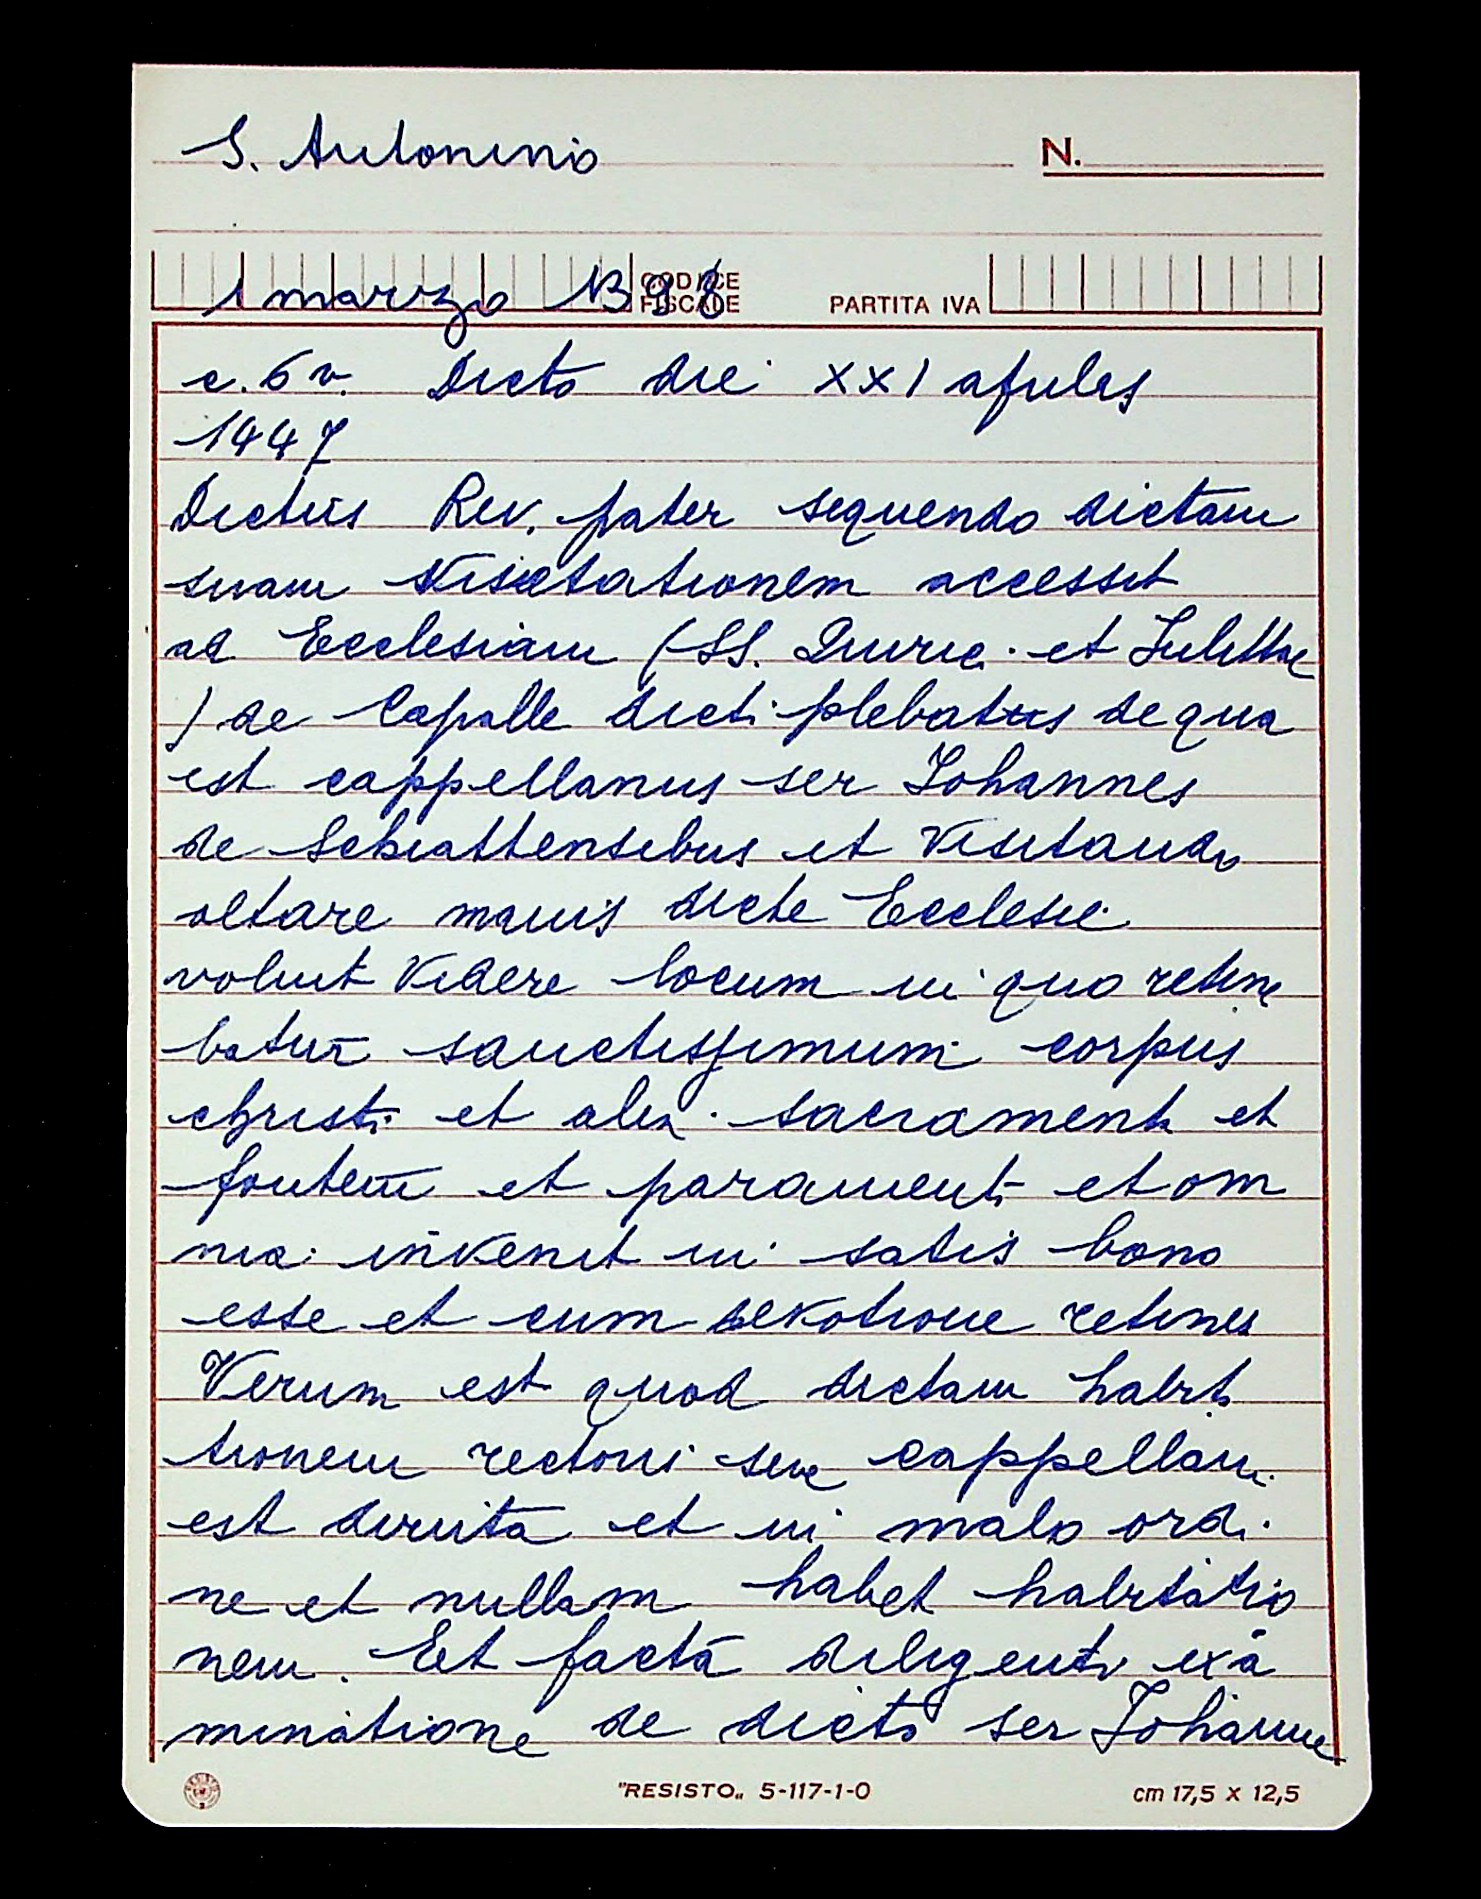 S. Antonino
N.
1 marzo 1398
CODICE FISCALE
PARTITA IVA
c. 6 v. Dicto die XXI aprilis
1447
Dictus Rev. pater sequendo dictam
suam visitationem accessit
ad Ecclesiam (SS. Quiric. et Julittae
) de Capalle dicti plebatus de qua
est cappellanus ser Johannes
de Schiattensibus et visitando
altare maius dicte Ecclesie
voluit videre locum in quo retine
batur sanctissimum corpus
christi et alia sacramenta et
fontem et paramenti et om
nia invenit in satis bono
esse et cum devotione retineri
Verum est quod dictam habita
tionem rectoris sive cappellani
est diruita et in malo ordi
ne et nullam habet habitatio
nem. Et facta diligenti exa
minatione de dicto ser Johanne
"RESISTO" 5-117-1-0
cm 17,5 x 12,5